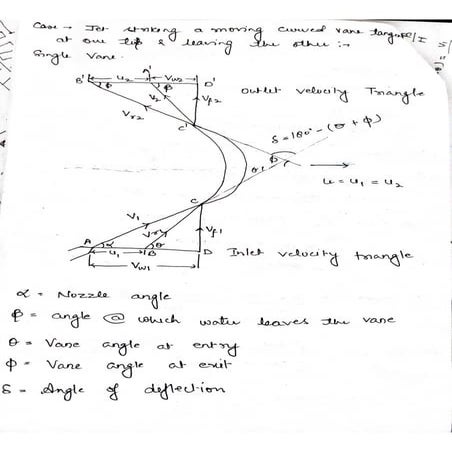 Case → Jet striking a moving curved vane tangentially
at one tip & leaving the other :-
Single Vane.
B' u₂ A' Vw₂ D'
ϕ β
V₂ Vf₂
Vr₂
C'
Outlet velocity Triangle
δ = 180° - (θ + ϕ)
ϕ
θ
u = u₁ = u₂
C
V₁ Vr₁ Vf₁
A α θ
u₁ B D
Vw₁
Inlet velocity triangle
α = Nozzle angle
β = angle @ which water leaves the vane
θ = Vane angle at entry
ϕ = Vane angle at exit
δ = Angle of deflection